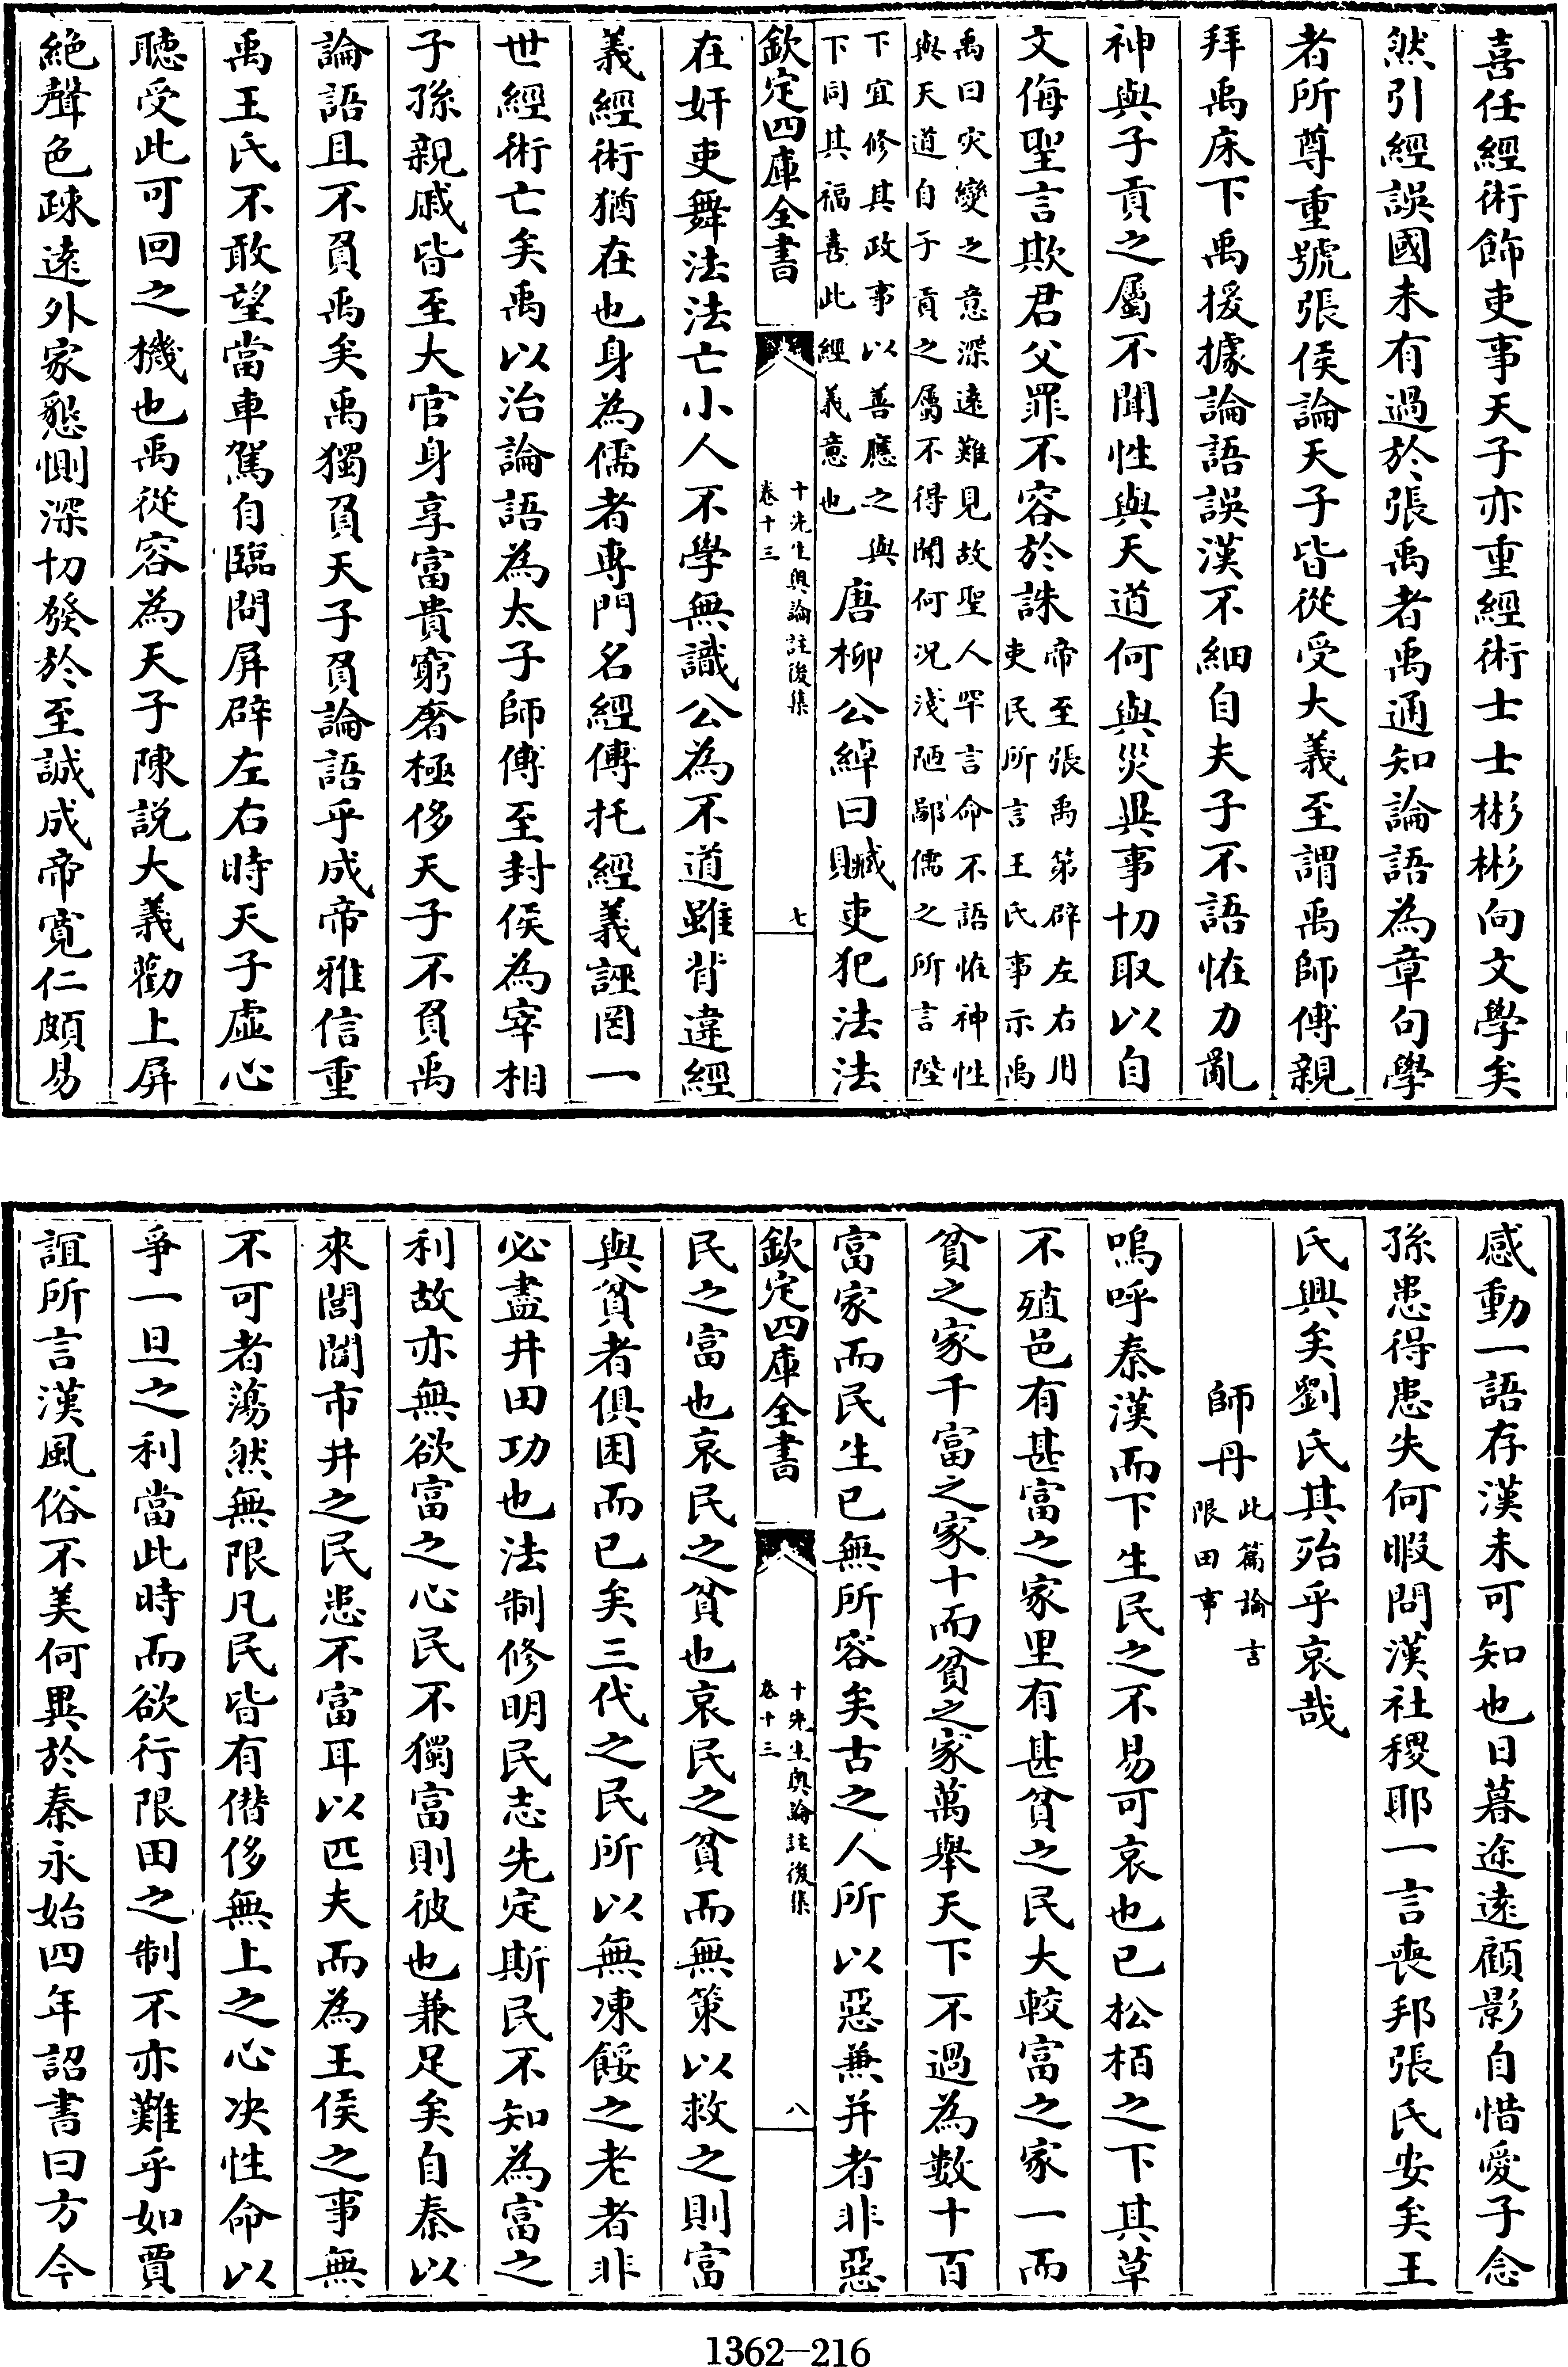 喜任經術飾吏事天子亦重經術士士彬彬向文學矣
然引經誤國未有過於張禹者禹通知論語為章句學
者所尊重號張侯論天子皆從受大義至謂禹師傅親
拜禹床下禹援據論語誤漢不細自夫子不語恠力亂
神與子貢之屬不聞性與天道何與災異事切取以自
文侮聖言欺君父罪不容於誅帝至張禹第辟左右用
吏民所言王氏事示禹
禹曰灾變之意深遠難見故聖人罕言命不語恠神性
與天道自子貢之屬不得聞何况淺陋鄙儒之所言陛
下宜修其政事以善應之與
下同其福喜此經義意也
唐柳公綽曰贓吏犯法法
欽定四庫全書
十先生奧論註後集
卷十三
七
在奸吏舞法法亡小人不學無識公為不道雖背違經
義經術猶在也身為儒者專門名經傳托經義誣罔一
世經術亡矣禹以治論語為太子師傅至封侯為宰相
子孫親戚皆至大官身享富貴窮奢極侈天子不負禹
論語且不負禹矣禹獨負天子負論語乎成帝雅信重
禹王氏不敢望當車駕自臨問屏辟左右時天子虛心
聽受此可回之機也禹從容為天子陳説大義勸上屏
絶聲色疎遠外家懇惻深切發於至誠成帝寛仁頗易
感動一語存漢未可知也日暮途遠顧影自惜愛子念
孫患得患失何暇問漢社稷耶一言喪邦張氏安矣王
氏興矣劉氏其殆乎哀哉
師丹此篇論言
限田事
嗚呼秦漢而下生民之不易可哀也已松栢之下其草
不殖邑有甚富之家里有甚貧之民大較富之家一而
貧之家千富之家十而貧之家萬舉天下不過為數十百
富家而民生已無所容矣古之人所以惡兼并者非惡
欽定四庫全書
十先生奧論註後集
卷十三
八
民之富也哀民之貧也哀民之貧而無策以救之則富
與貧者俱困而已矣三代之民所以無凍餒之老者非
必盡井田功也法制修明民志先定斯民不知為富之
利故亦無欲富之心民不獨富則彼也兼足矣自秦以
來閭閻市井之民患不富耳以匹夫而為王侯之事無
不可者蕩然無限凡民皆有僭侈無上之心決性命以
爭一旦之利當此時而欲行限田之制不亦難乎如賈
誼所言漢風俗不美何異於秦永始四年詔書曰方今
1362-216